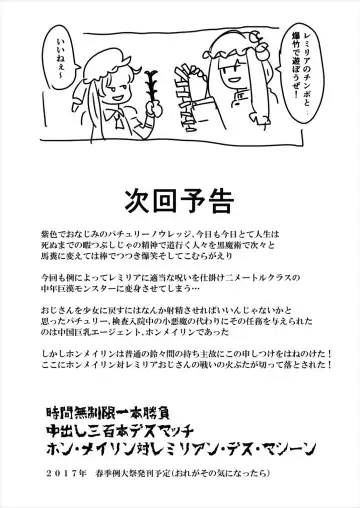 レミリアのチンポと
爆竹で遊ぼうぜ!
いいねぇ~
次回予告
紫色でおなじみのパチュリーノウレッジ、今日も今日とて人生は
死ぬまでの暇つぶしじゃの精神で道行く人々を黒魔術で次々と
馬糞に変えては棒でつつき爆笑そしてこむらがえり
今回も例によってレミリアに適当な呪いを仕掛け二メートルクラスの
中年巨漢モンスターに変身させてしまう…
おじさんを少女に戻すにはなんか射精させればいいんじゃないかと
思ったパチュリー、検査入院中の小悪魔の代わりにその任務を与えられた
のは中国巨乳エージェント、ホンメイリンであった
しかしホンメイリンは普通の鈴々間の持ち主故にこの申しつけをはねのけた!
ここにホンメイリン対レミリアおじさんの戦いの火ぶたが切って落とされた!
時間無制限一本勝負
中出し三百本デスマッチ
ホン・メイリン対レミリアン・デス・マシーン
2017年 春季例大祭発刊予定(おれがその気になったら)